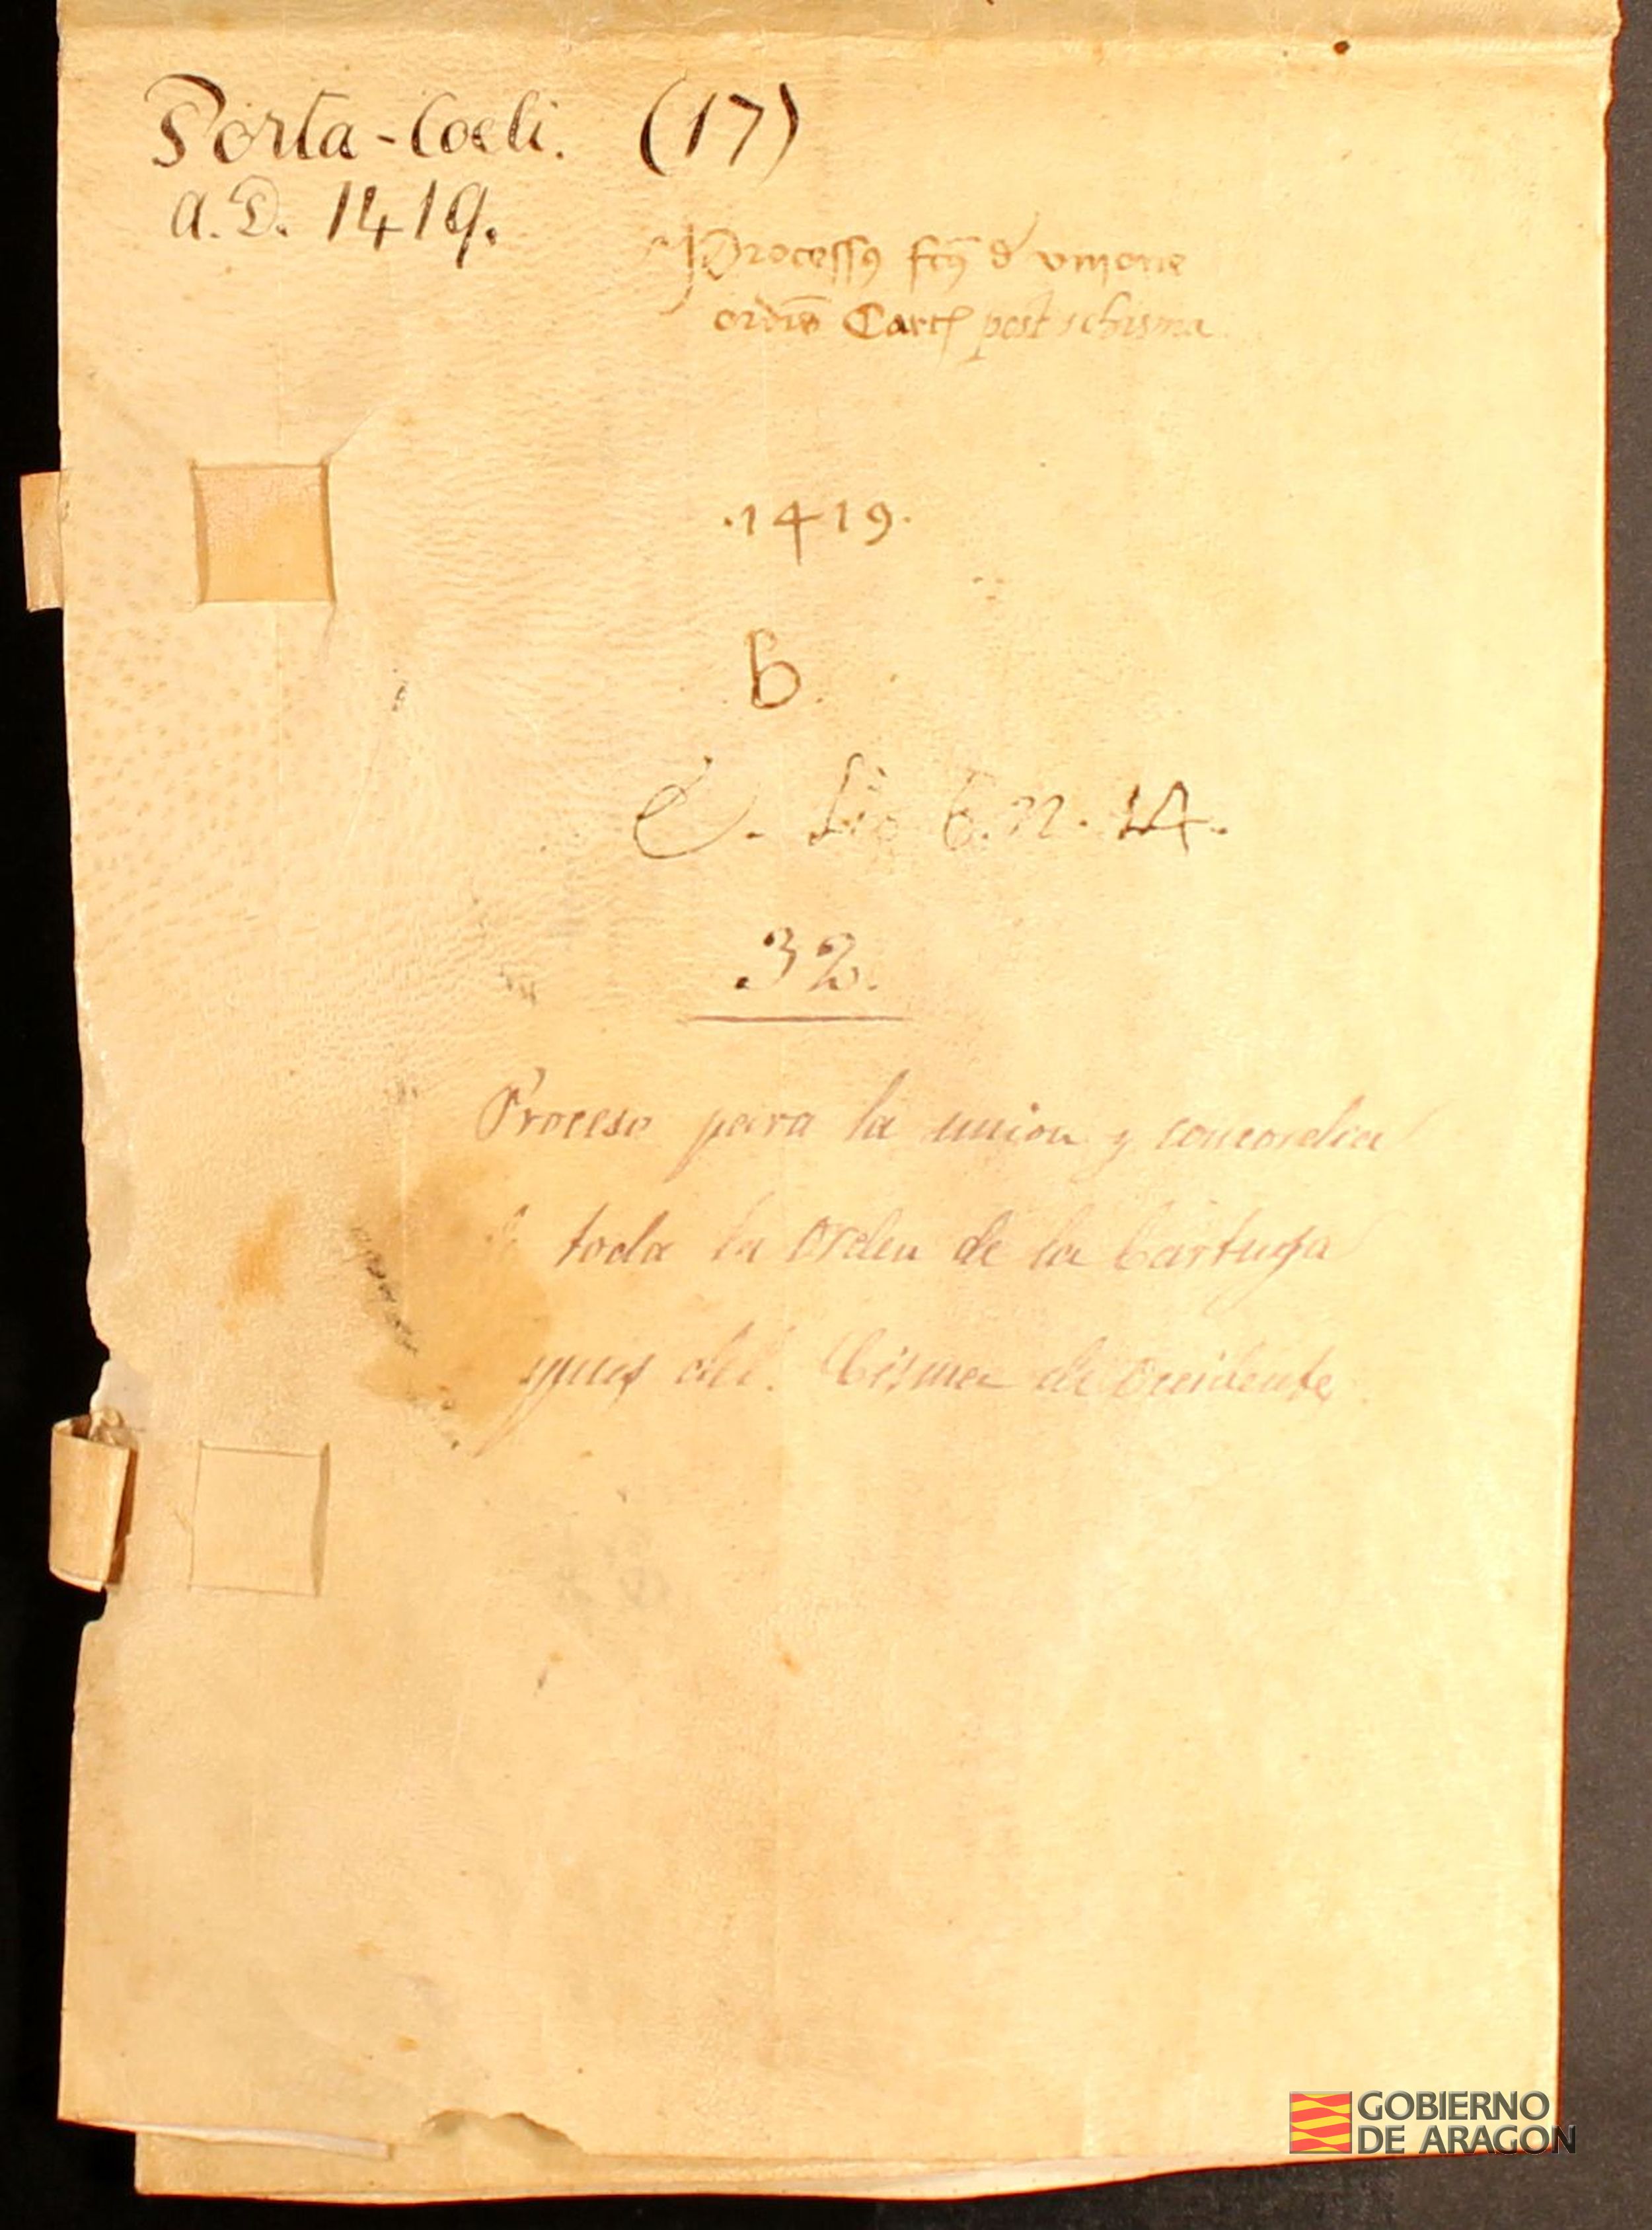 Porta-Coeli. (17)
a.D. 1419.
Processꝯ fcꝯ̃ d' vnione
ordīs Cartꝭ post schisma
.1419.
b.
C. Lio 6. n. 14.
32.
Proceso para la union y concordia
toda la Orden de la Cartuja
spues del. Cisma de Occidente.
GOBIERNO
DE ARAGON